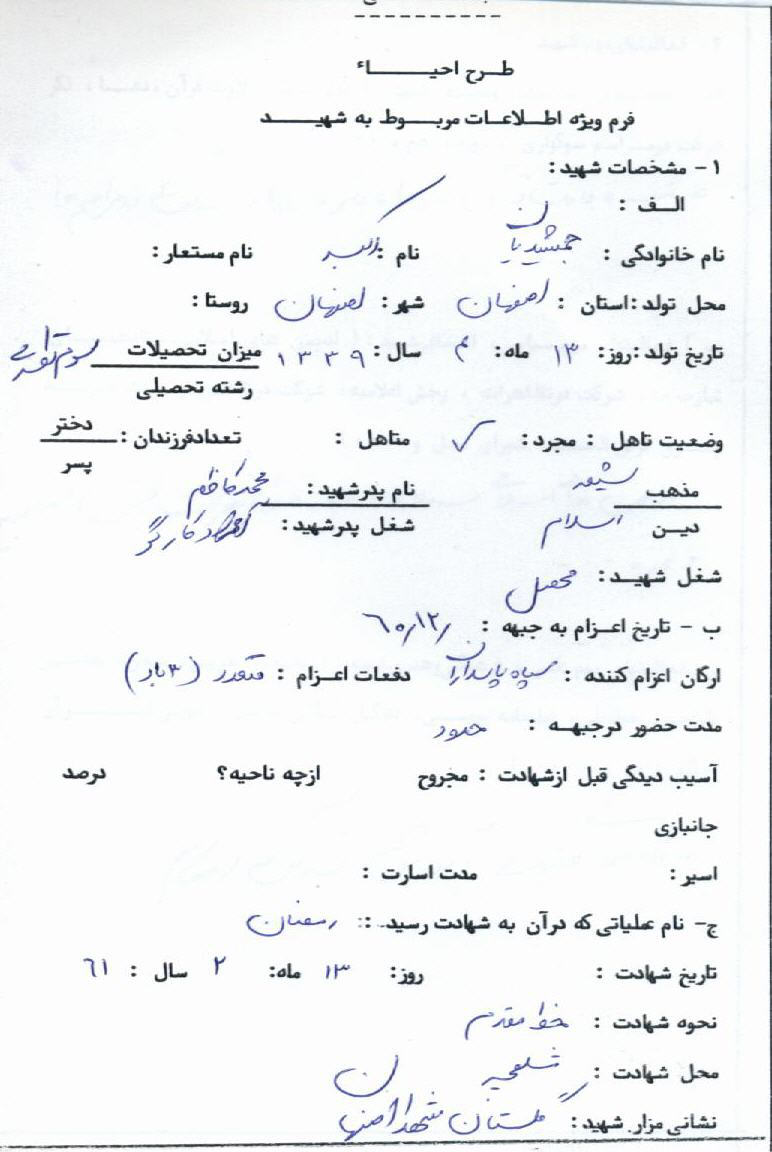 طرح احیاء
فرم ویژه اطلاعات مربوط به شهید
۱- مشخصات شهید:
الف :
نام خانوادگی : جمشیدیان نام : اکبر نام مستعار :
محل تولد : استان : اصفهان شهر : اصفهان روستا :
تاریخ تولد : روز : ۱۳ ماه : ۴ سال : ۱۳۳۹ میزان تحصیلات
رشته تحصیلی
وضعیت تاهل : مجرد : ✓ متاهل : تعدادفرزندان : دختر
پسر
مذهب شیعه نام پدرشهید : محمدکاظم
دین اسلام شغل پدرشهید : کارگر
شغل شهید : محصل
ب - تاریخ اعزام به جبهه : /۶۰/۱۲
ارگان اعزام کننده : سپاه پاسداران دفعات اعزام : متعدد (۳ بار)
مدت حضور درجبهه : حدود
آسیب دیدگی قبل ازشهادت : مجروح ازچه ناحیه؟ درصد
جانبازی
اسیر : مدت اسارت :
ج- نام عملیاتی که درآن به شهادت رسید : رمضان
تاریخ شهادت : روز : ۱۳ ماه : ۲ سال : ۶۱
نحوه شهادت : خط مقدم
محل شهادت : شلمچه
نشانی مزار شهید : گلستان شهدا اصفهان